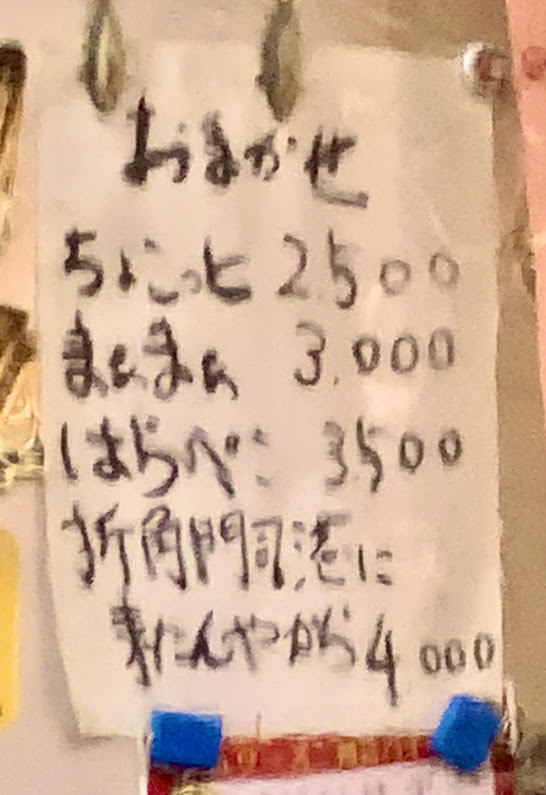 おまかせ
ちょこっと 2.500
まぁまぁ 3.000
はらぺこ 3.500
折角門司港に
きたんやから 4000